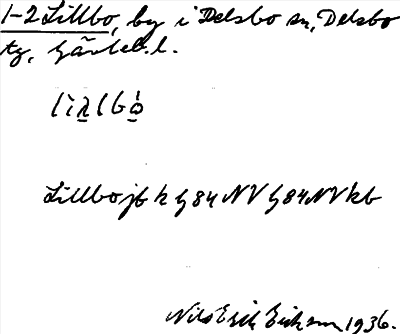 1-2 Lillbo, by i Delsbo sn, Delsbo
tg, Gävleb. l.
Lillbo jb k G 84 NV G 84 NV kb
Nils Erik Erikson 1936.